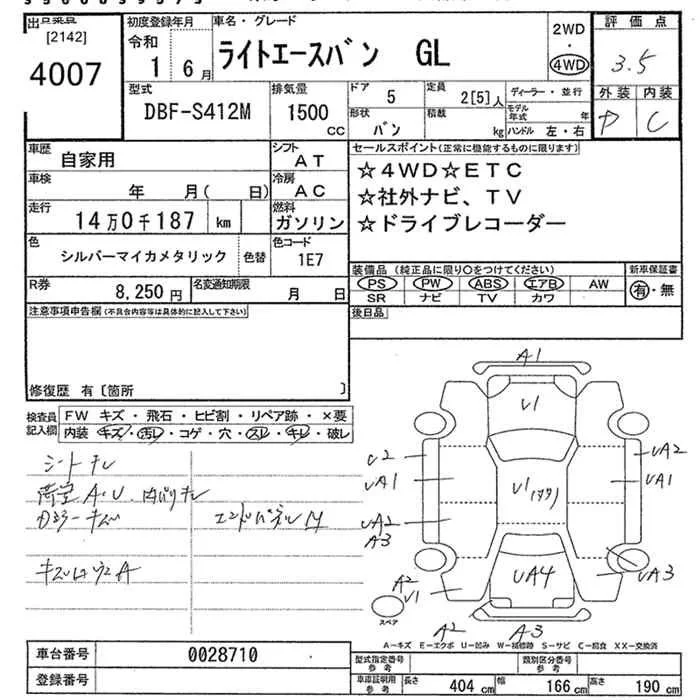 出品番号 [2142]
4007
初度登録年月
令和
1 6月
車名・グレード
ライトエースバン GL
2WD
・
4WD
評価点
3.5
外装 内装
C
型式
DBF-S412M
排気量
1500
CC
ドア
5
定員
2[5]人
ディーラー・並行
形状
バン
積載
kg
モデル年式 年
ハンドル 左・右
車歴
自家用
シフト
AT
車検
年 月( 日)
冷房
AC
走行
14万0千187 km
燃料
ガソリン
色
シルバーマイカメタリック
色替
色コード
1E7
R券
8,250円
名変通知期限
月 日
セールスポイント(正常に機能するものに限ります)
☆4WD☆ETC
☆社外ナビ、TV
☆ドライブレコーダー
装備品(純正品に限り○をつけてください)
PS PW ABS エアB AW
SR ナビ TV カワ
新車保証書
有・無
後日品
注意事項申告欄(不具合内容等は具体的に記入して下さい)
修復歴 有〔箇所 〕
検査員記入欄
FW キズ・飛石・ヒビ割・リペア跡・×要
内装 キズ・汚レ・コゲ・穴・スレ・キレ・破レ
シートナレ
荷室A.U.内バリキレ
エンドパネルM
A1
U1
U2
UA1
UA2
A3
UA2
UA1
U1
UA4
UA3
A2
U1
スペア
A2
A3
A－キズ E－エクボ U－凹み W－補修跡 S－サビ C－腐食 XX－交換済
車台番号
0028710
登録番号
型式指定番号
参考
類別区分番号
参考
車庫証明用
参考
長さ
404 cm
幅
166 cm
高さ
190 cm